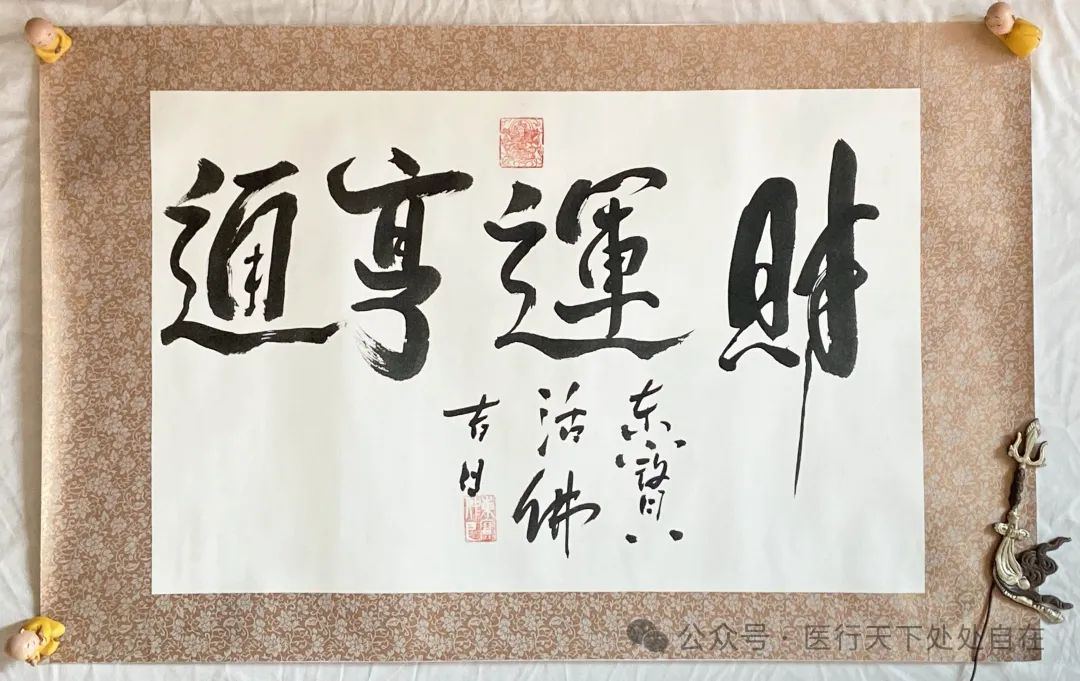 財運亨通
东寶
活佛
吉日
公众号·医行天下处处自在